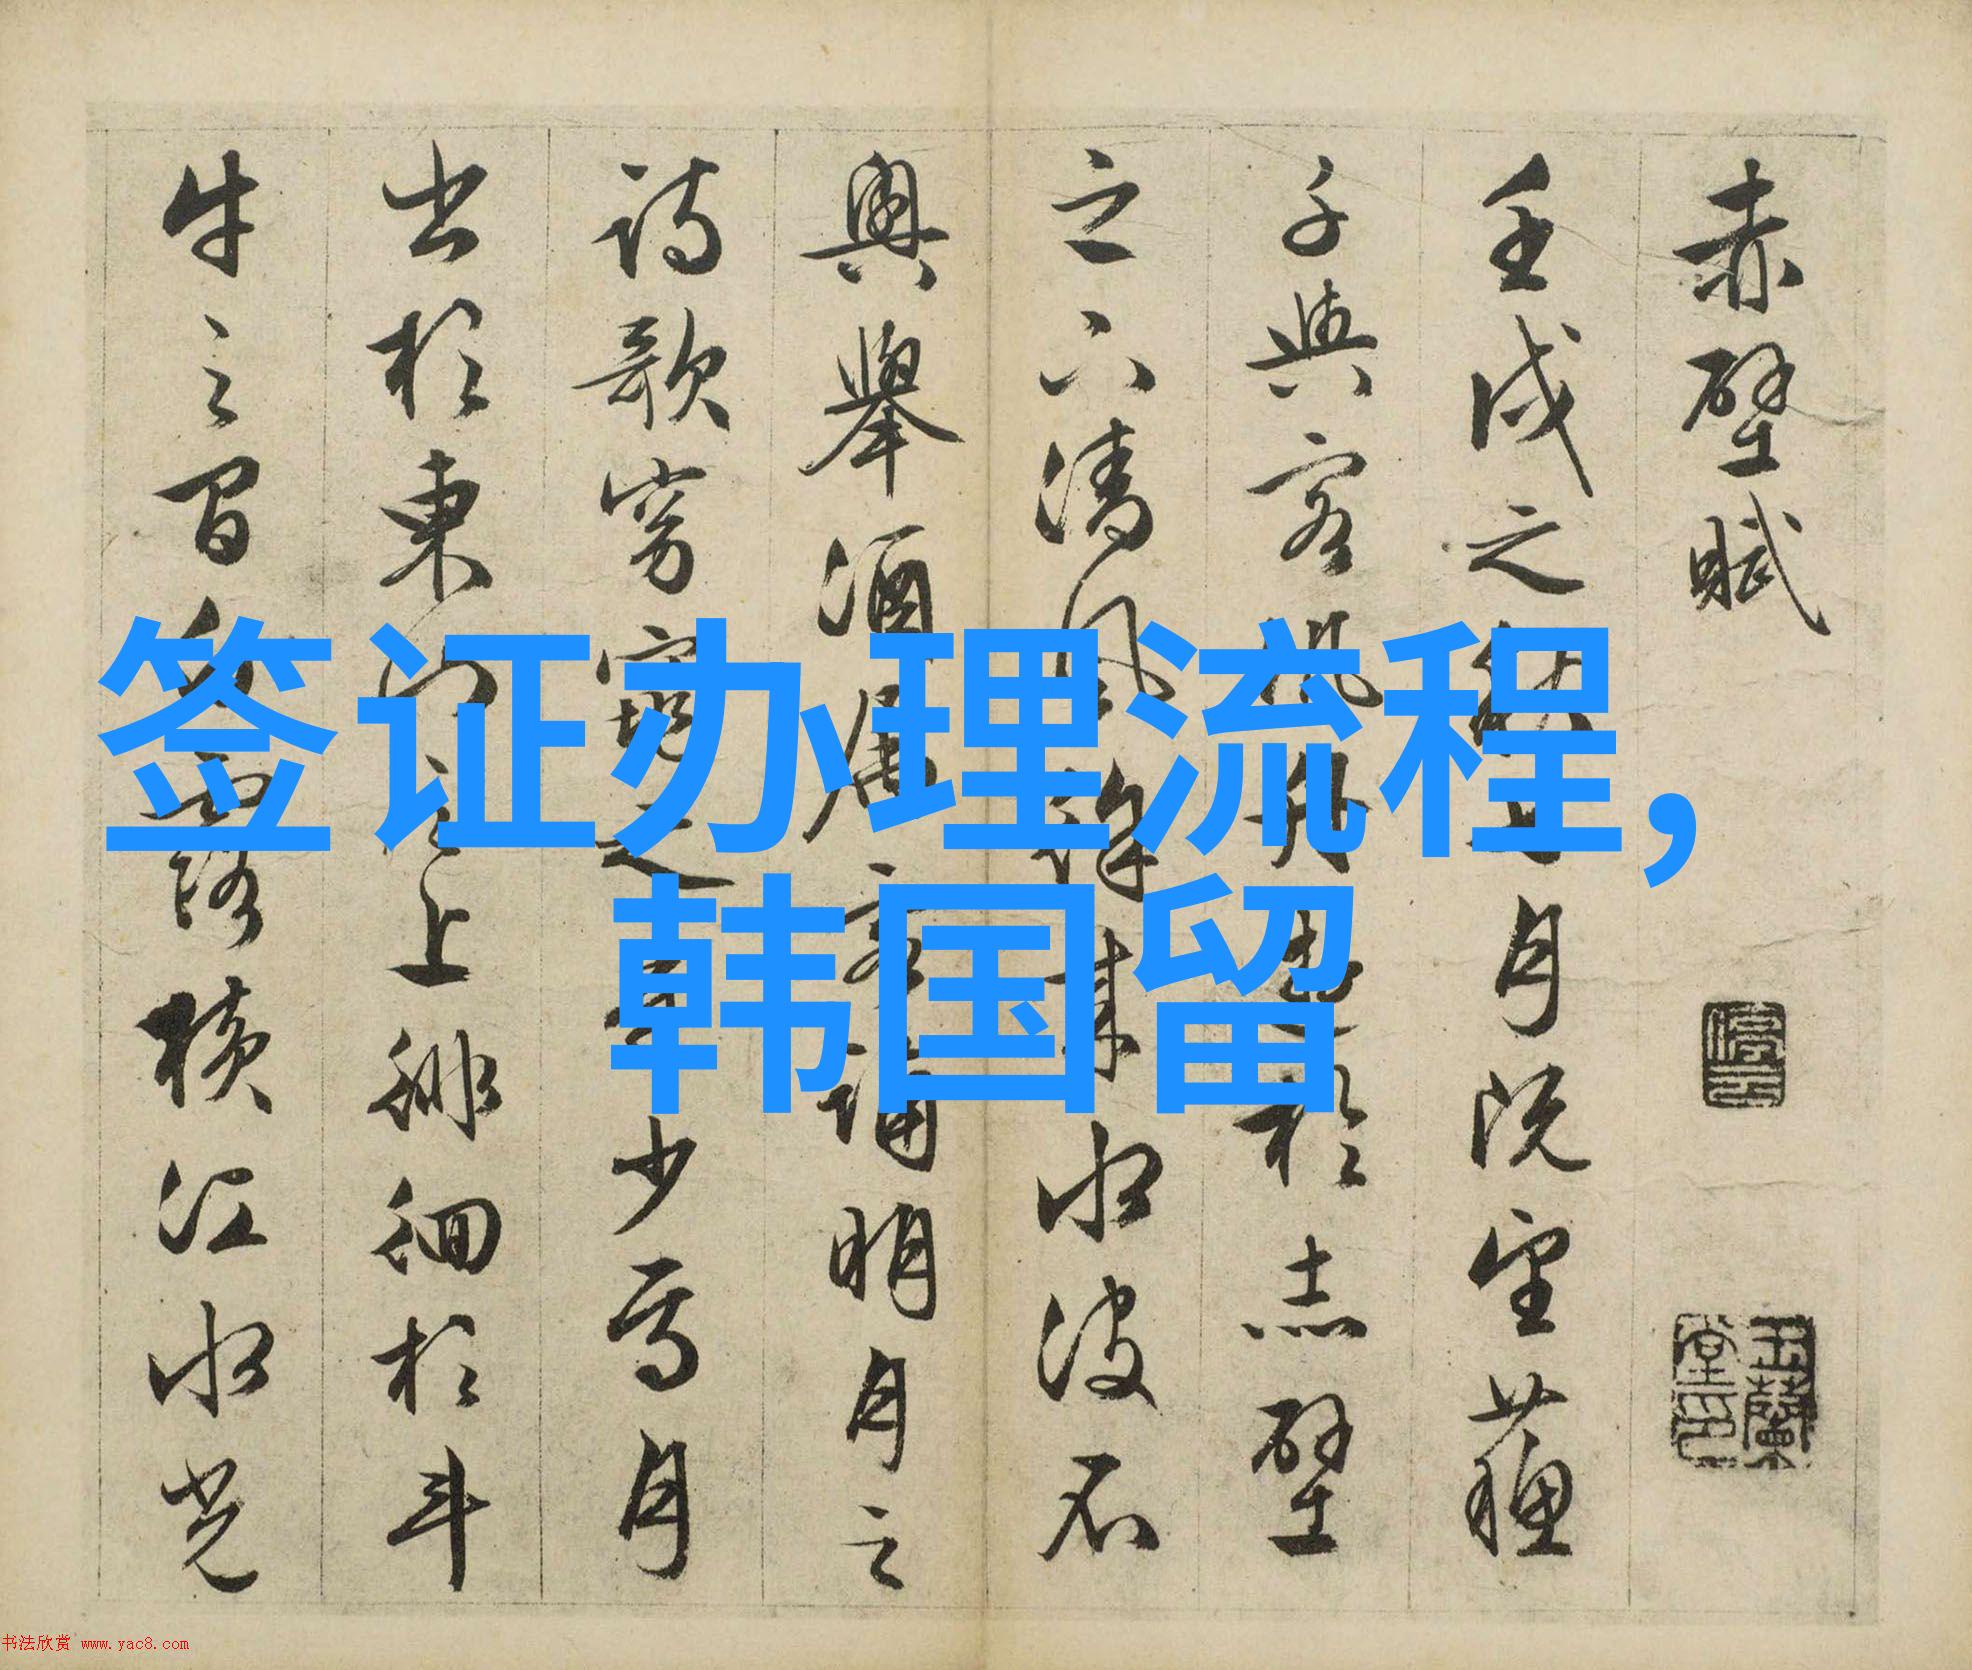 签证办理流程,
韩国留
赤壁賦
壬戌之秋七月既望蘇
子與客泛舟遊於赤壁
之下清風徐来水波不
興舉酒屬客誦明月之
詩歌窈窕之章少焉月
出於東山之上徘徊於斗
牛之間白露橫江水光
停云
玉蘭堂印
书法欣赏 www.yac8.com